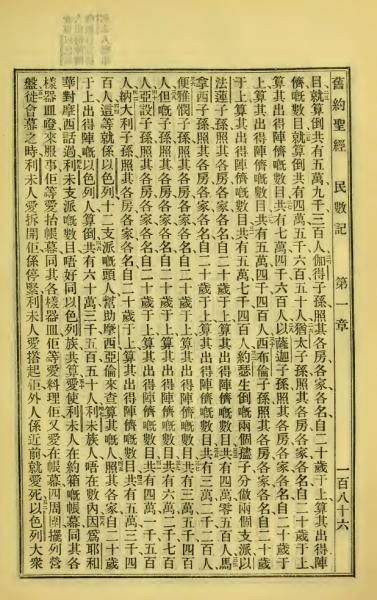 舊約聖經　民數記　第一章　一百八十六
目就算倒共有五萬九千三百人伽得子孫照其各房各家各名自二十歲于上算其出得陣
儕嘅數目就算倒共有四萬五千六百五十人猶太子孫照其各房各家各名自二十歲于上
算其出得陣儕嘅數目共有七萬四千六百人以薩迦子孫照其各房各家各名自二十歲于
上算其出得陣儕嘅數目共有五萬四千四百人西布倫子孫照其各房各家各名自二十歲
于上算其出得陣儕嘅數目共有五萬七千四百人約瑟生倒嘅兩個孻子分做兩個支派以
法蓮子孫照其各房各家各名自二十歲于上算其出得陣儕嘅數目共有四萬零五百人馬
拿西子孫照其各房各家各名自二十歲于上算其出得陣儕嘅數目共有三萬二千二百人
便雅憫子孫照其各房各家各名自二十歲于上算其出得陣儕嘅數目共有三萬五千四百
人但嘅子孫照其各房各家各名自二十歲于上算其出得陣儕嘅數目共有六萬二千七百
人亞設子孫照其各房各家各名自二十歲于上算其出得陣儕嘅數目共有四萬一千五百
人納大利子孫照其各房各家各名自二十歲于上算其出得陣儕嘅數目共有五萬三千四
百人這等就係以色列十二支派嘅頭人幫助摩西亞倫來查算其嘅人照其各家自二十歲
于上出得陣嘅以色列人算倒共有六十萬三千五百五十人利未族人唔在數內因爲耶和
華對摩西話過利未支派嘅數目唔好同以色列族共算愛使利未人在約箱嘅帳幕同其各
樣器皿蹬來服事佢等愛抬帳幕同其各樣器皿佢等愛料理佢又愛在帳幕四周圍擺列營
盤徒會幕之時利未人愛拆開佢係停緊利未人愛搭起佢外人係近前就愛死以色列大衆